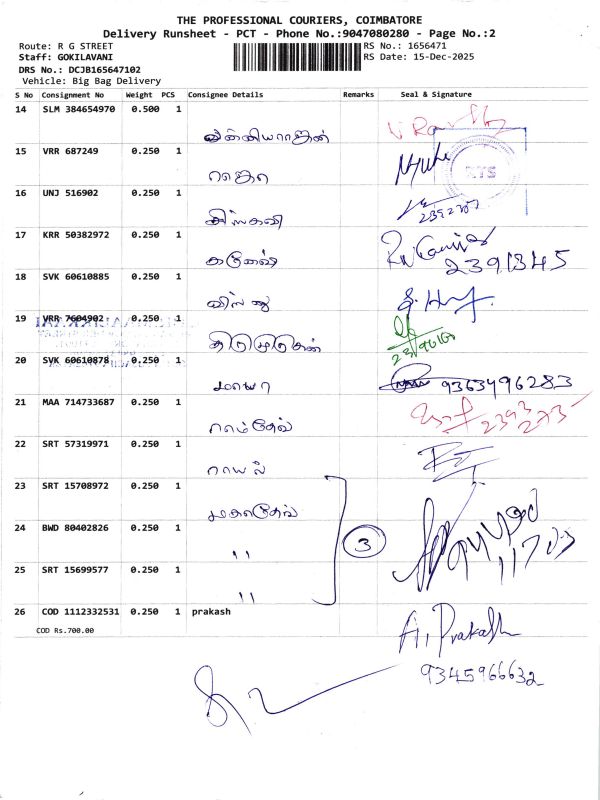 THE PROFESSIONAL COURIERS, COIMBATORE
Delivery Runsheet - PCT - Phone No.:9047080280 - Page No.:2
Route: R G STREET
RS No.: 1656471
Staff: GOKILAVANI
RS Date: 15-Dec-2025
DRS No.: DCJB165647102
Vehicle: Big Bag Delivery
S No Consignment No Weight PCS Consignee Details Remarks Seal & Signature
14 SLM 384654970 0.500 1
வன்னியராஜன்
15 VRR 687249 0.250 1
ராஜா
KTS
16 UNJ 516902 0.250 1
17 KRR 50382972 0.250 1
2391345
18 SVK 60610885 0.250 1
விஷ்ணு
19 VRR 7604902 0.250 1
திருமுருகன்
20 SVK 60610878 0.250 1
மாயா 9363496283
21 MAA 714733687 0.250 1
ராம்தேவ் 2393
273
22 SRT 57319971 0.250 1
ராயல்
23 SRT 15708972 0.250 1
மகாதேவ்
24 BWD 80402826 0.250 1
" 3
25 SRT 15699577 0.250 1
"
26 COD 1112332531 0.250 1 prakash
COD Rs.700.00
A. Prakash
9345966632